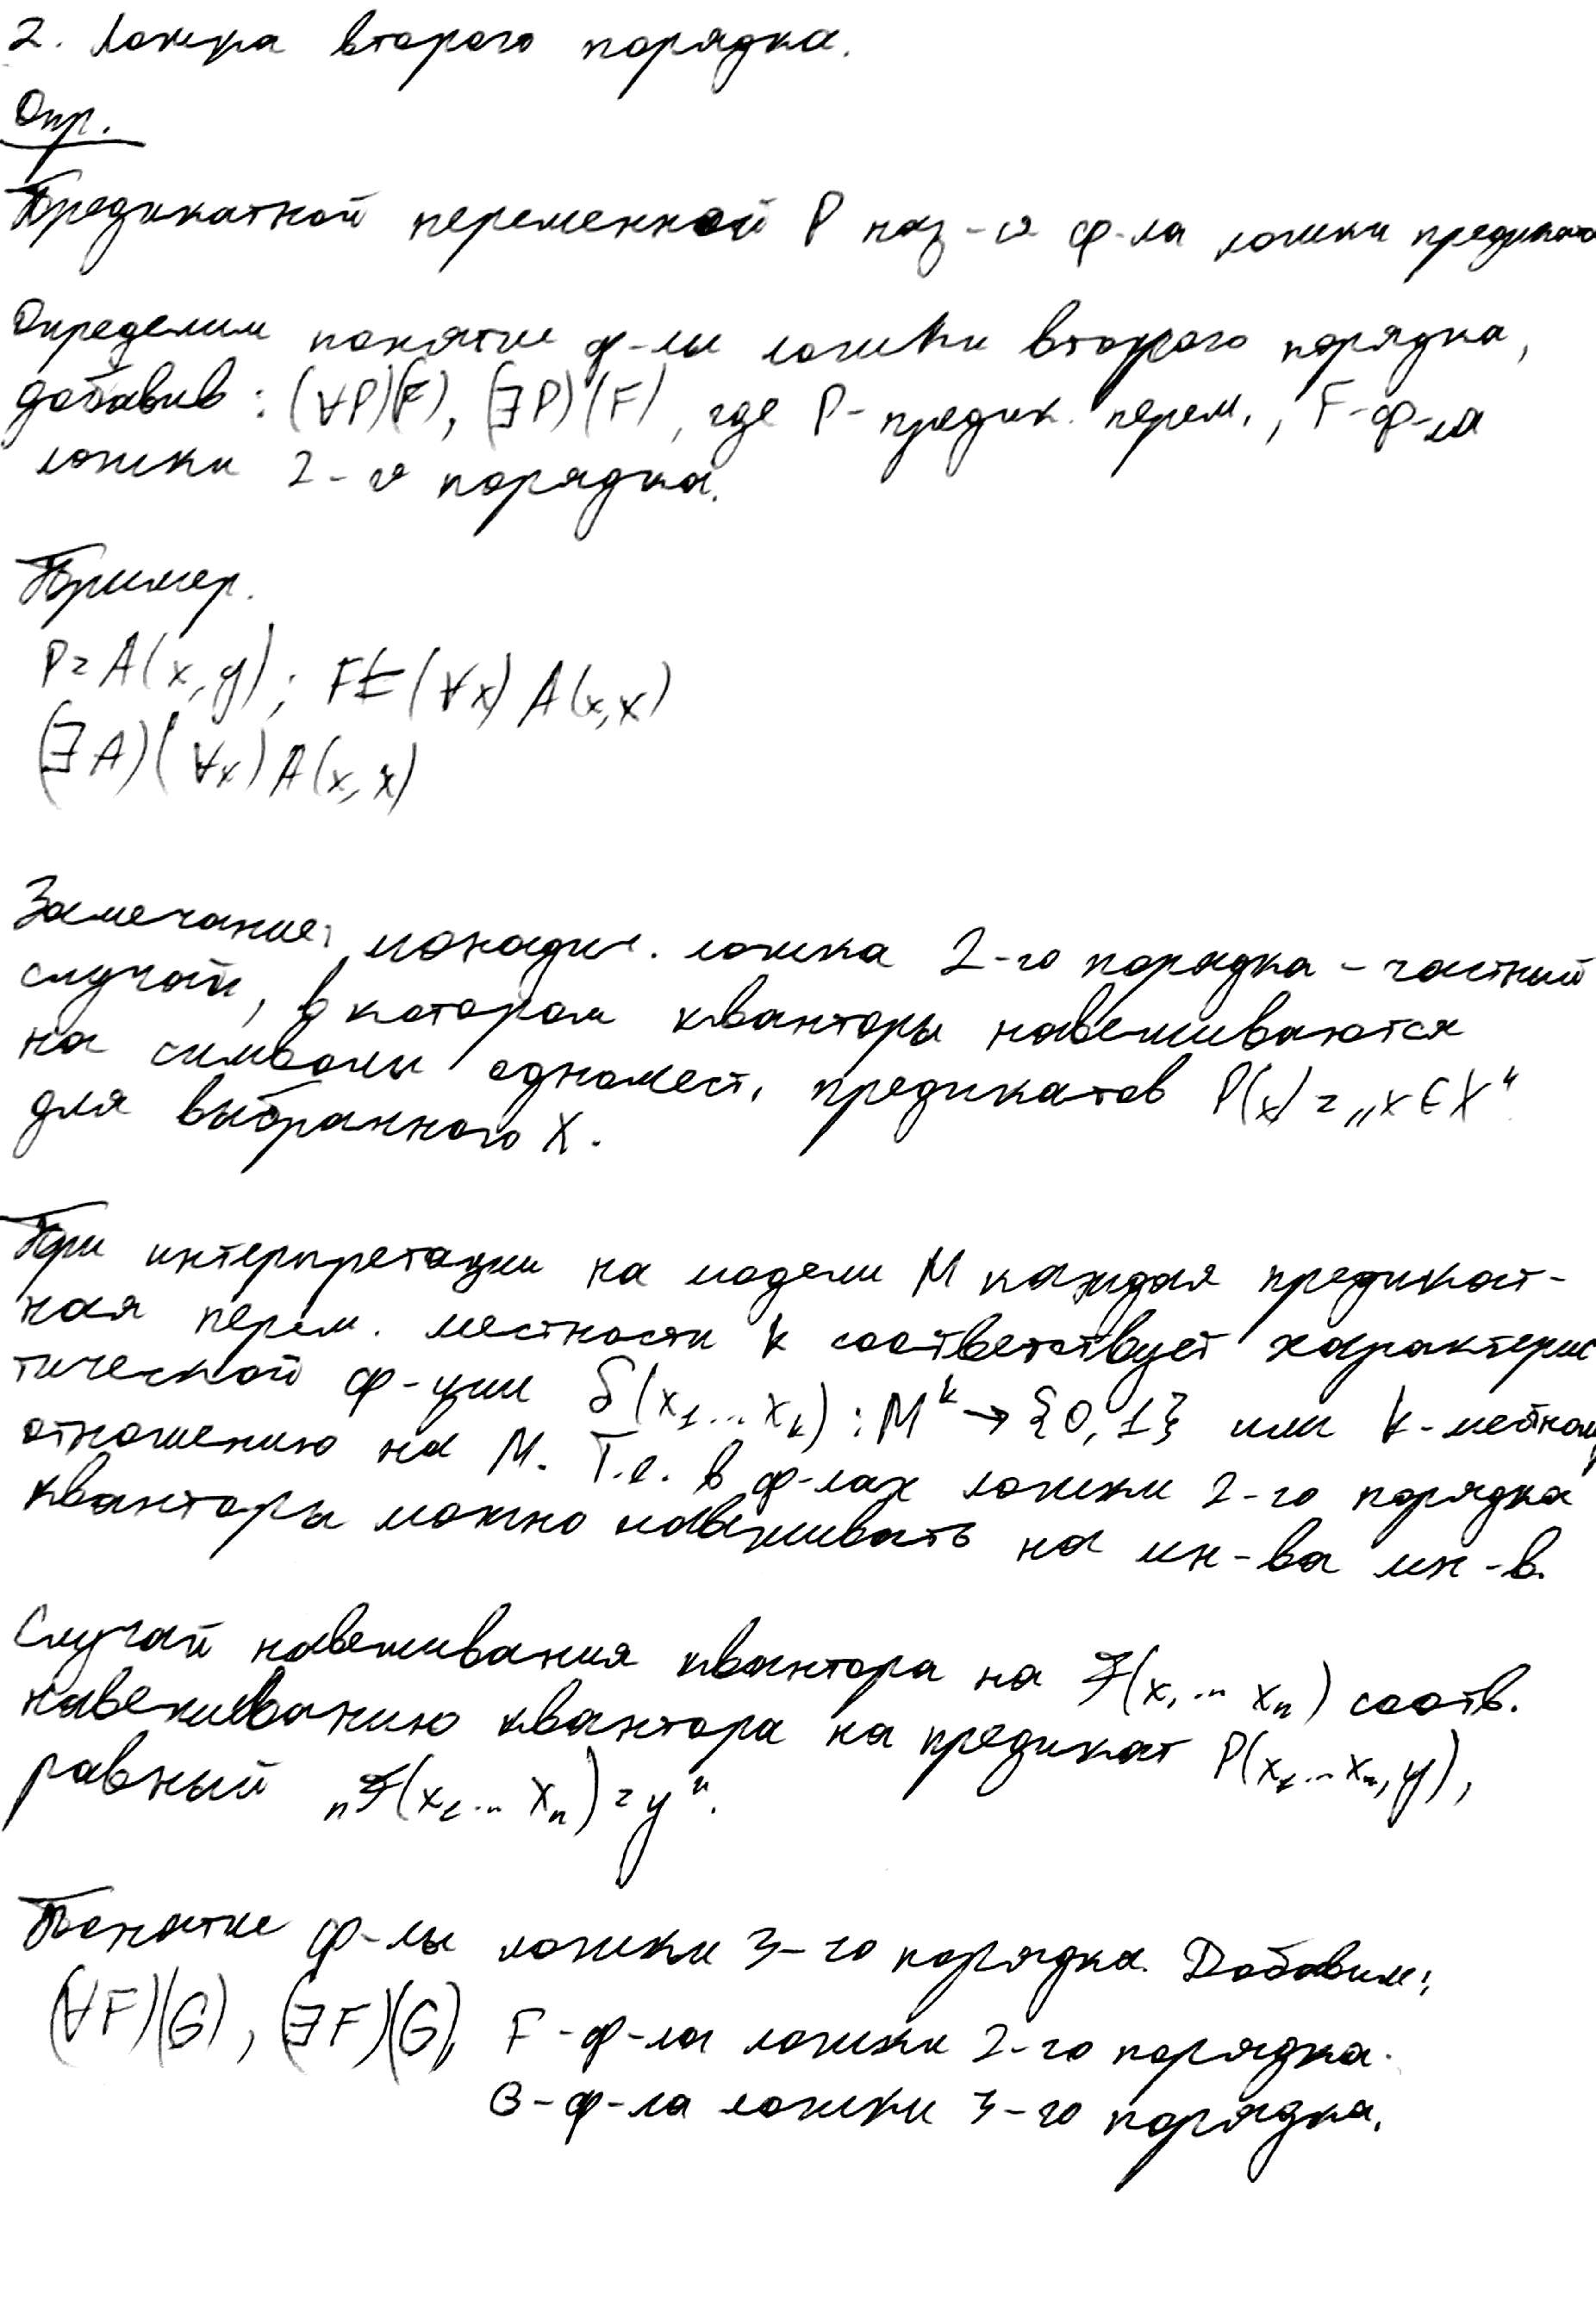 2. Логика второго порядка.
Опр.
Предикатной переменной P наз-ся ф-ла логики предикатов
Определим понятие ф-лы логики второго порядка,
добавив: (∀P)(F), (∃P)(F), где P - предик. перем., F - ф-ла
логики 2-го порядка.
Пример.
P = A(x, y); F = (∀x) A(x, x)
(∃A)(∀x) A(x, x)
Замечание: монадич. логика 2-го порядка - частный
случай, в котором кванторы навешиваются
на символы одномест. предикатов P(x) = „x ∈ X“
для выбранного X.
При интерпретации на модели M каждая предикат-
ная перем. местности k соответствует характерис
тической ф-ции δ(x₁...xₖ): Mᵏ → {0, 1} или k-местному
отношению на M. Т.е. в ф-лах логики 2-го порядка
кванторы можно навешивать на мн-ва мн-в.
Случай навешивания квантора на F(x₁...xₙ) соотв.
навешиванию квантора на предикат P(x₁...xₙ, y),
равный „F(x₁...xₙ) = y“.
Понятие ф-лы логики 3-го порядка. Добавим:
(∀F)(G), (∃F)(G), F - ф-ла логики 2-го порядка.
G - ф-ла логики 3-го порядка.